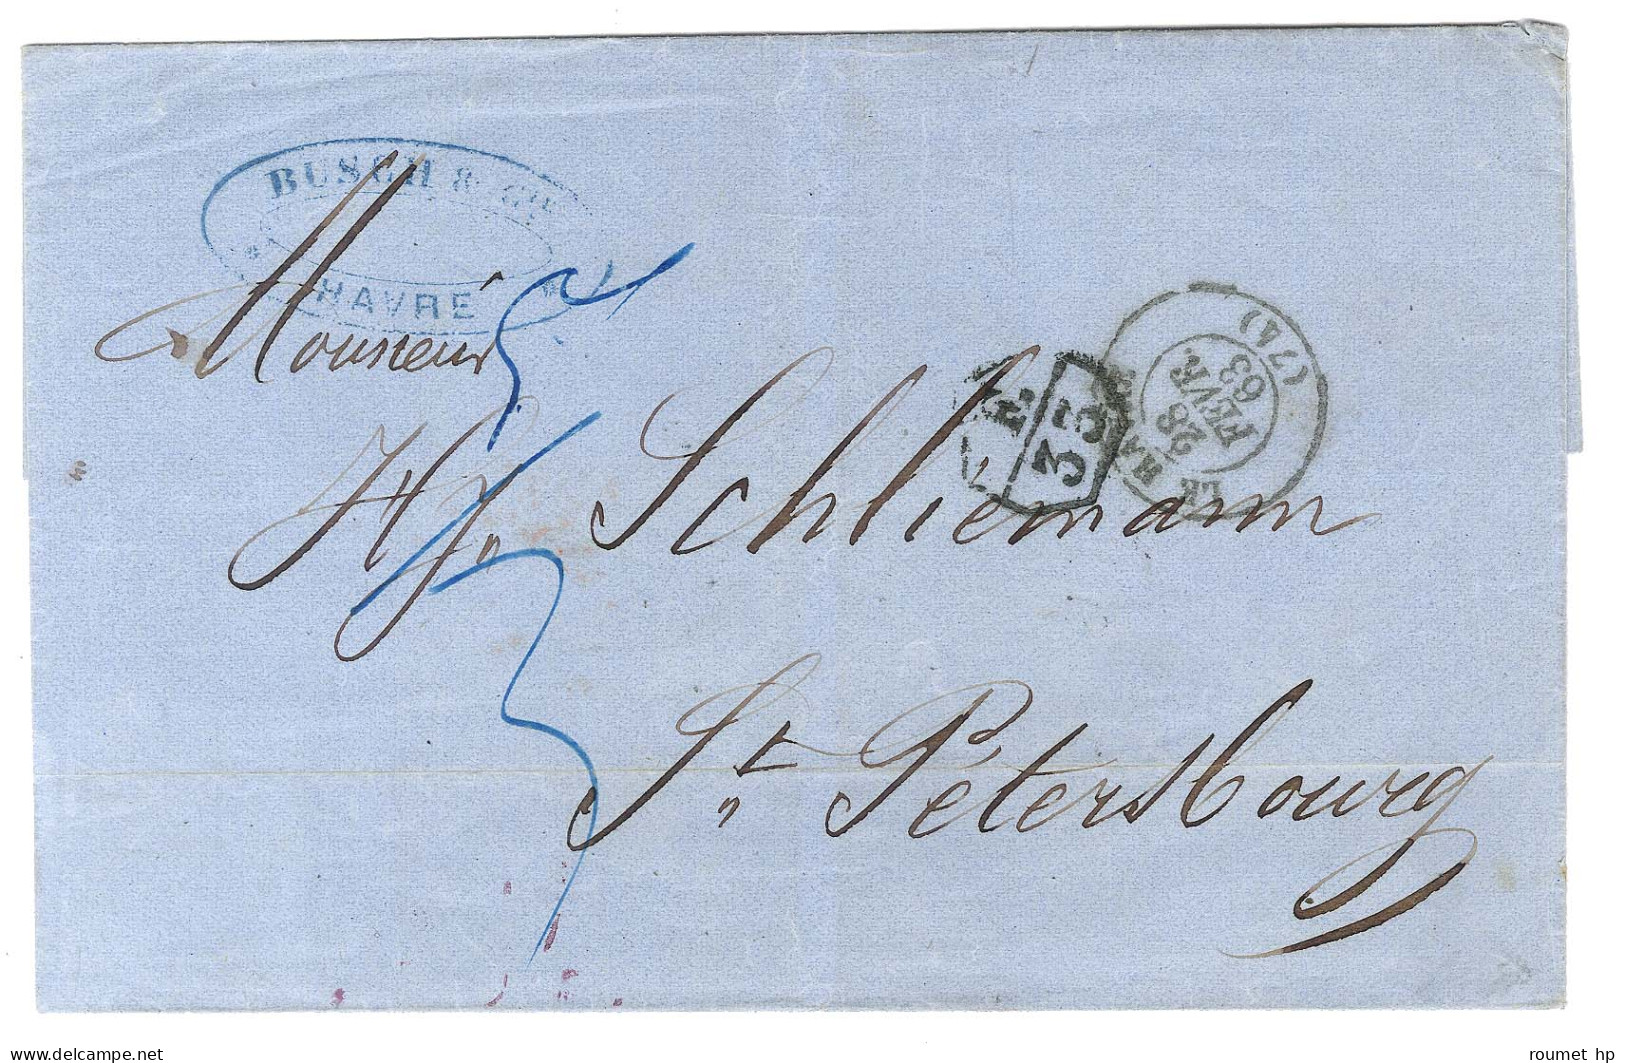 BUSCH & CIE
HAVRE
Monsieur
Hy. Schliemann
St. Pétersbourg
F. R.
33
LE HAVRE
28
FEVR.
63
(74)
delcampe.net
roumet hp